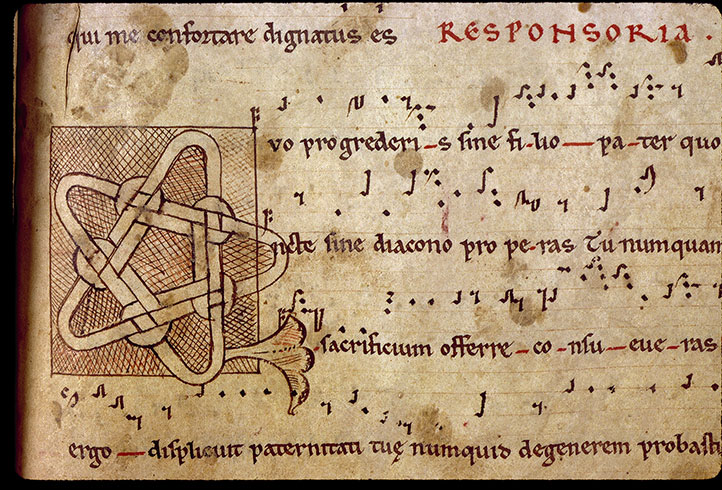 qui me confortare dignatus es RESPONSORIA .
vo progrederi-s sine fi-lio — pa-ter quo
ncte sine diacono pro pe-ras Tu numquam
sacrificium offerre-co-nsu-eue-ras
ergo — displicuit paternitati tuę numquid degenerem probasti